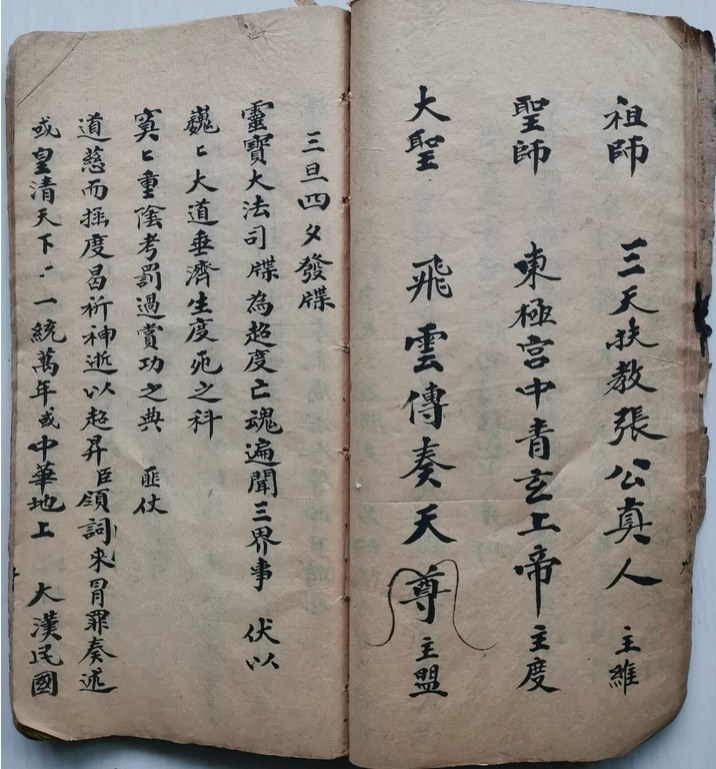 祖師 三天扶教張公真人 主維
聖師 東極宮中青玄上帝 主度
大聖 飛雲傳奏天尊 主盟
三旦四夕發牒
靈寶大法司牒為超度亡魂遍聞三界事 伏以
巍〻大道垂濟生度死之科
冥〻重陰考罰過賞功之典 匪仗
道慈而拯度曷祈神逝以超昇臣領詞來冐罪奏述
或皇清天下〻一統萬年或中華地上 大漢民國